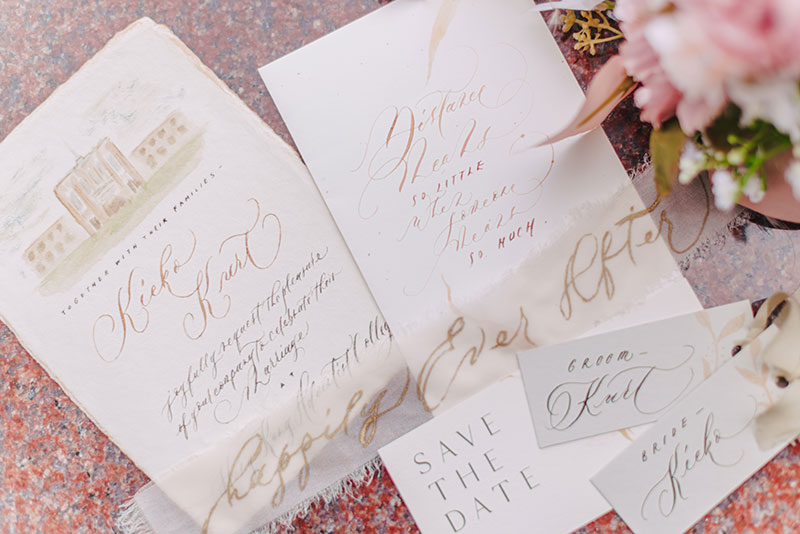 TOGETHER WITH THEIR FAMILIES
Kieko
Kurt
joyfully request the pleasure
of your company to celebrate their
Marriage
AT
Distance
Means
SO LITTLE
when
Someone
Means
SO MUCH.
happily Ever After
SAVE
THE
DATE
GROOM—
Kurt
BRIDE—
Kieko